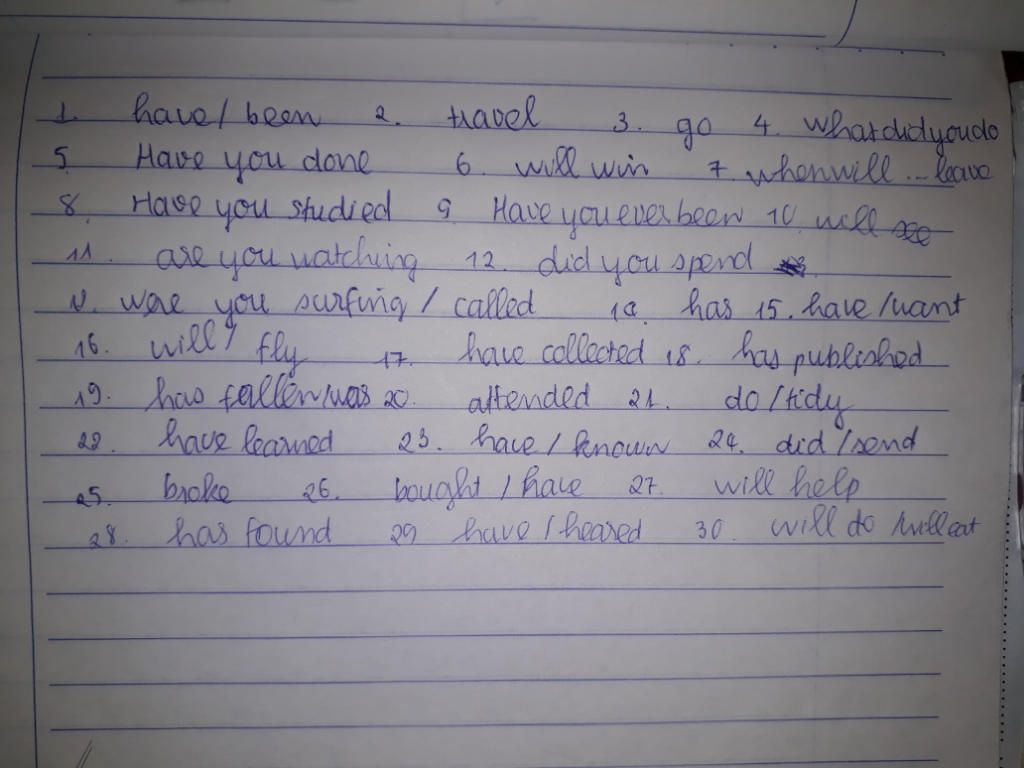 1. have / been 2. travel 3. go 4. what did you do
5. Have you done 6. will win 7. when will ... leave
8. Have you studied 9. Have you ever been 10. will
11. are you watching 12. did you spend
were you surfing / called 14. has 15. have / want
16. will / fly 17. have collected 18. has published
19. has fallen / was 20. attended 21. do / tidy
22. have learned 23. have / known 24. did / send
25. broke 26. bought / have 27. will help
28. has found 29 have / heared 30. will do / will eat